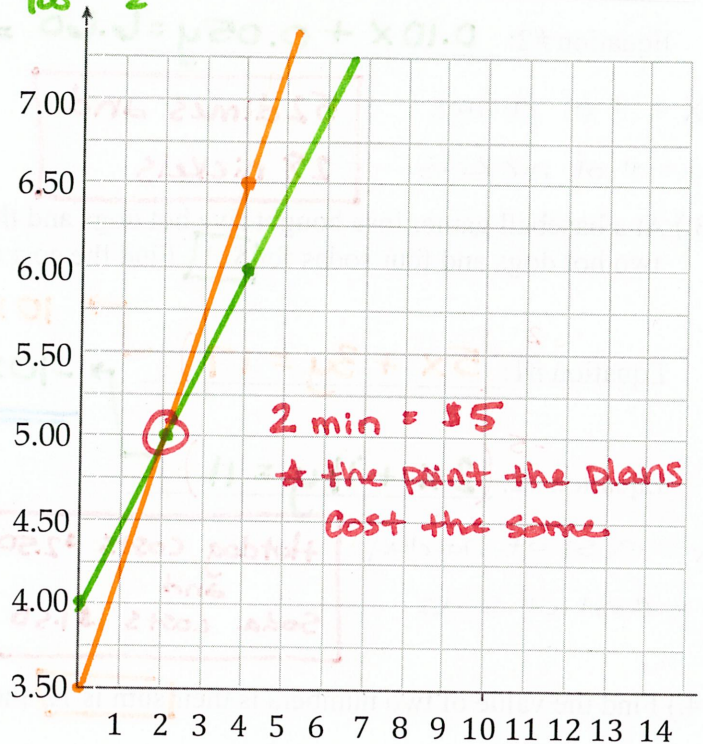 7.00
6.50
6.00
5.50
5.00
4.50
4.00
3.50
2 min = $5
* the point the plans
cost the same
1 2 3 4 5 6 7 8 9 10 11 12 13 14